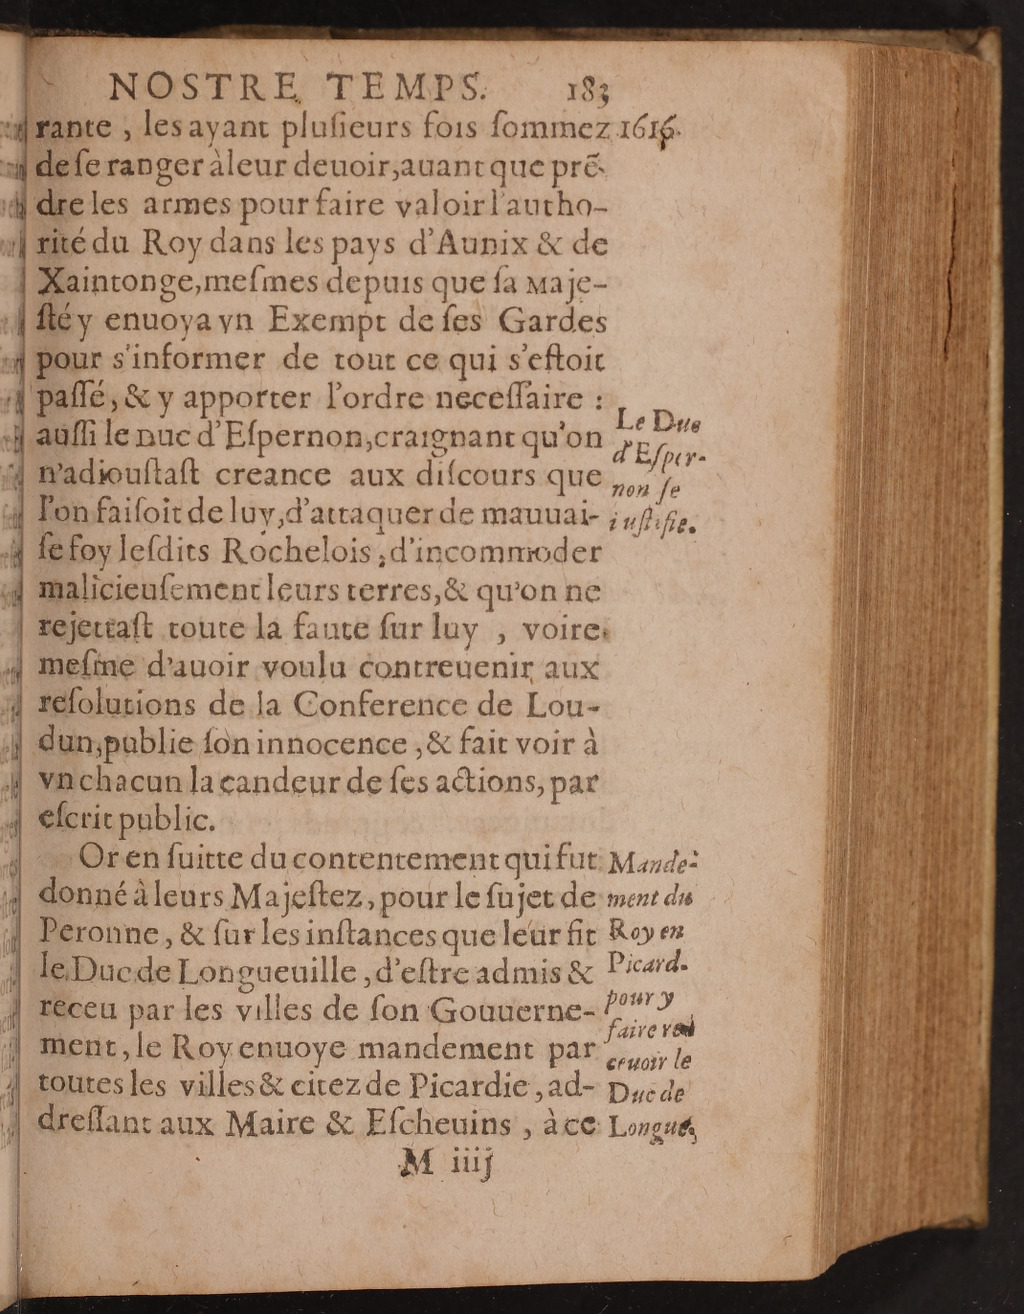 NOSTRE TEMPS. 183
rante , les ayant plusieurs fois sommez 1616.
de se ranger à leur deuoir, auant que prē-
dre les armes pour faire valoir l'autho-
rité du Roy dans les pays d'Aunix & de
Xaintonge, mesmes depuis que sa Maje-
sté y enuoya vn Exempt de ses Gardes
pour s'informer de tout ce qui s'estoit
passé, & y apporter l'ordre necessaire :
aussi le Duc d'Espernon, craignant qu'on
n'adioustast creance aux discours que
l'on faisoit de luy, d'attaquer de mauuai-
se foy lesdits Rochelois , d'incommoder
malicieusement leurs terres, & qu'on ne
rejettast toute la faute sur luy , voire
mesme d'auoir voulu contreuenir aux
resolutions de la Conference de Lou-
dun, publie son innocence , & fait voir à
vn chacun la candeur de ses actions, par
escrit public.
Le Duc
d'Esper-
non se
iustifie.
Or en suitte du contentement qui fut
donné à leurs Majestez, pour le sujet de
Peronne, & sur les instances que leur fit
le Duc de Longueuille , d'estre admis &
receu par les villes de son Gouuerne-
ment, le Roy enuoye mandement par
toutes les villes & citez de Picardie , ad-
dressant aux Maire & Escheuins , à ce
Mande-
ment du
Roy en
Picard.
pour y
faire
ceuoir le
Duc de
Longue
M iiij